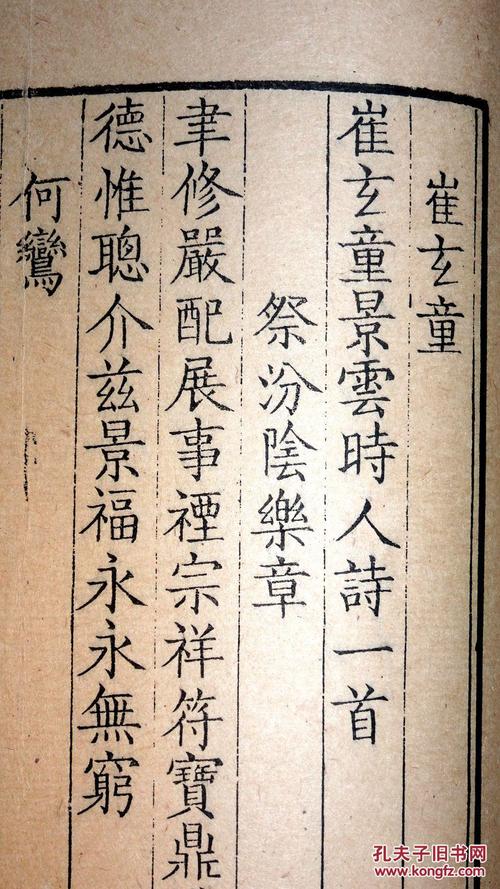 崔玄童
崔玄童景雲時人詩一首
祭汾陰樂章
聿修嚴配展事禋宗祥符寶鼎
德惟聰介兹景福永永無窮
何鸞
孔夫子旧书网
www.kongfz.com